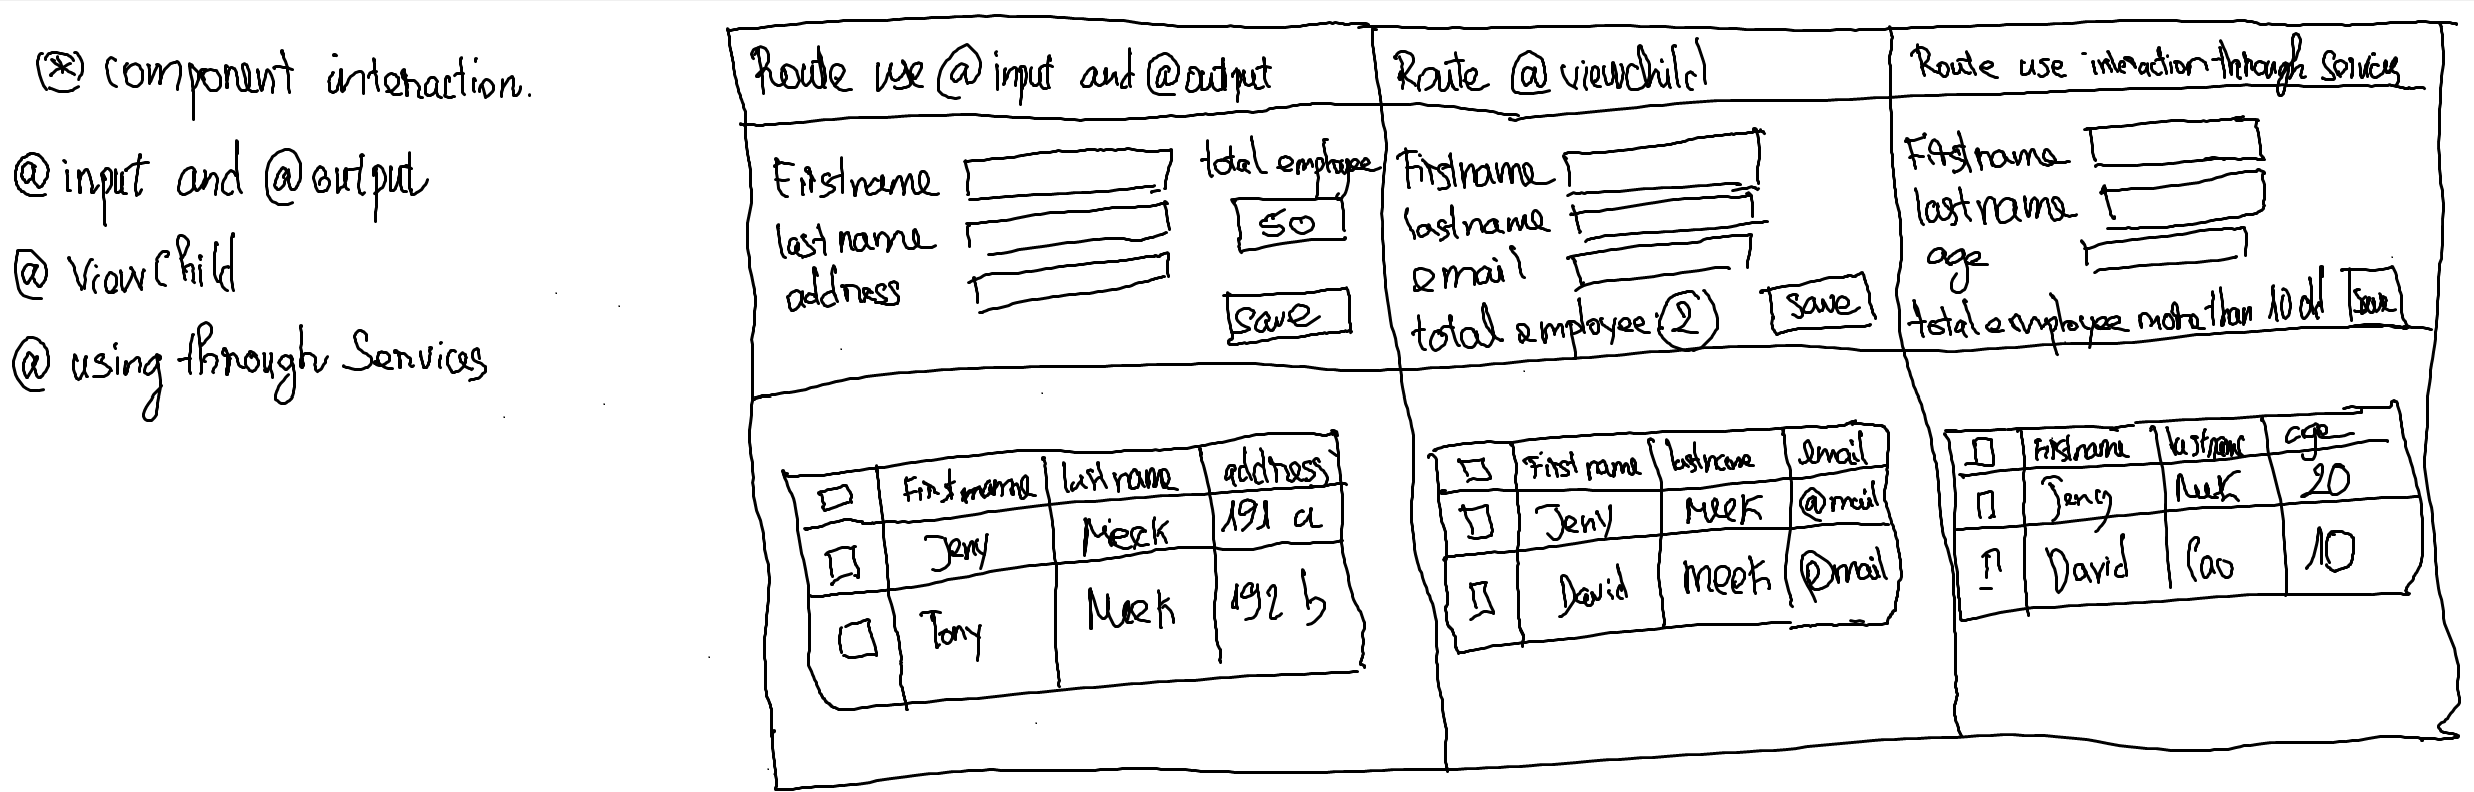 (*) component interaction.
@ input and @ output
@ ViewChild
@ using through Services
Route use @ input and @ output
Firstname
last name
address
total employee
50
save
Firstname lastname address
Jeny Meek 191 a
Tony Meek 192 b
Route @ viewchild
Firstname
lastname
email
total employee: 2
save
First name lastname email
Jeny Meek @mail
David meek @mail
Route use interaction through Services
Firstname
lastname
age
total employee more than 10 old
save
Firstname lastname age
Jeny 20
David Cao 10